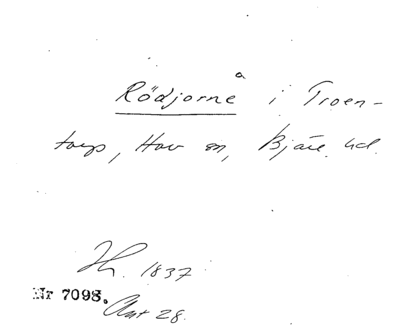 Rödjornå i Troen-
torp, Hov sn, Bjäre hd.
Ih. 1837
Nr 7098. Ant 28.